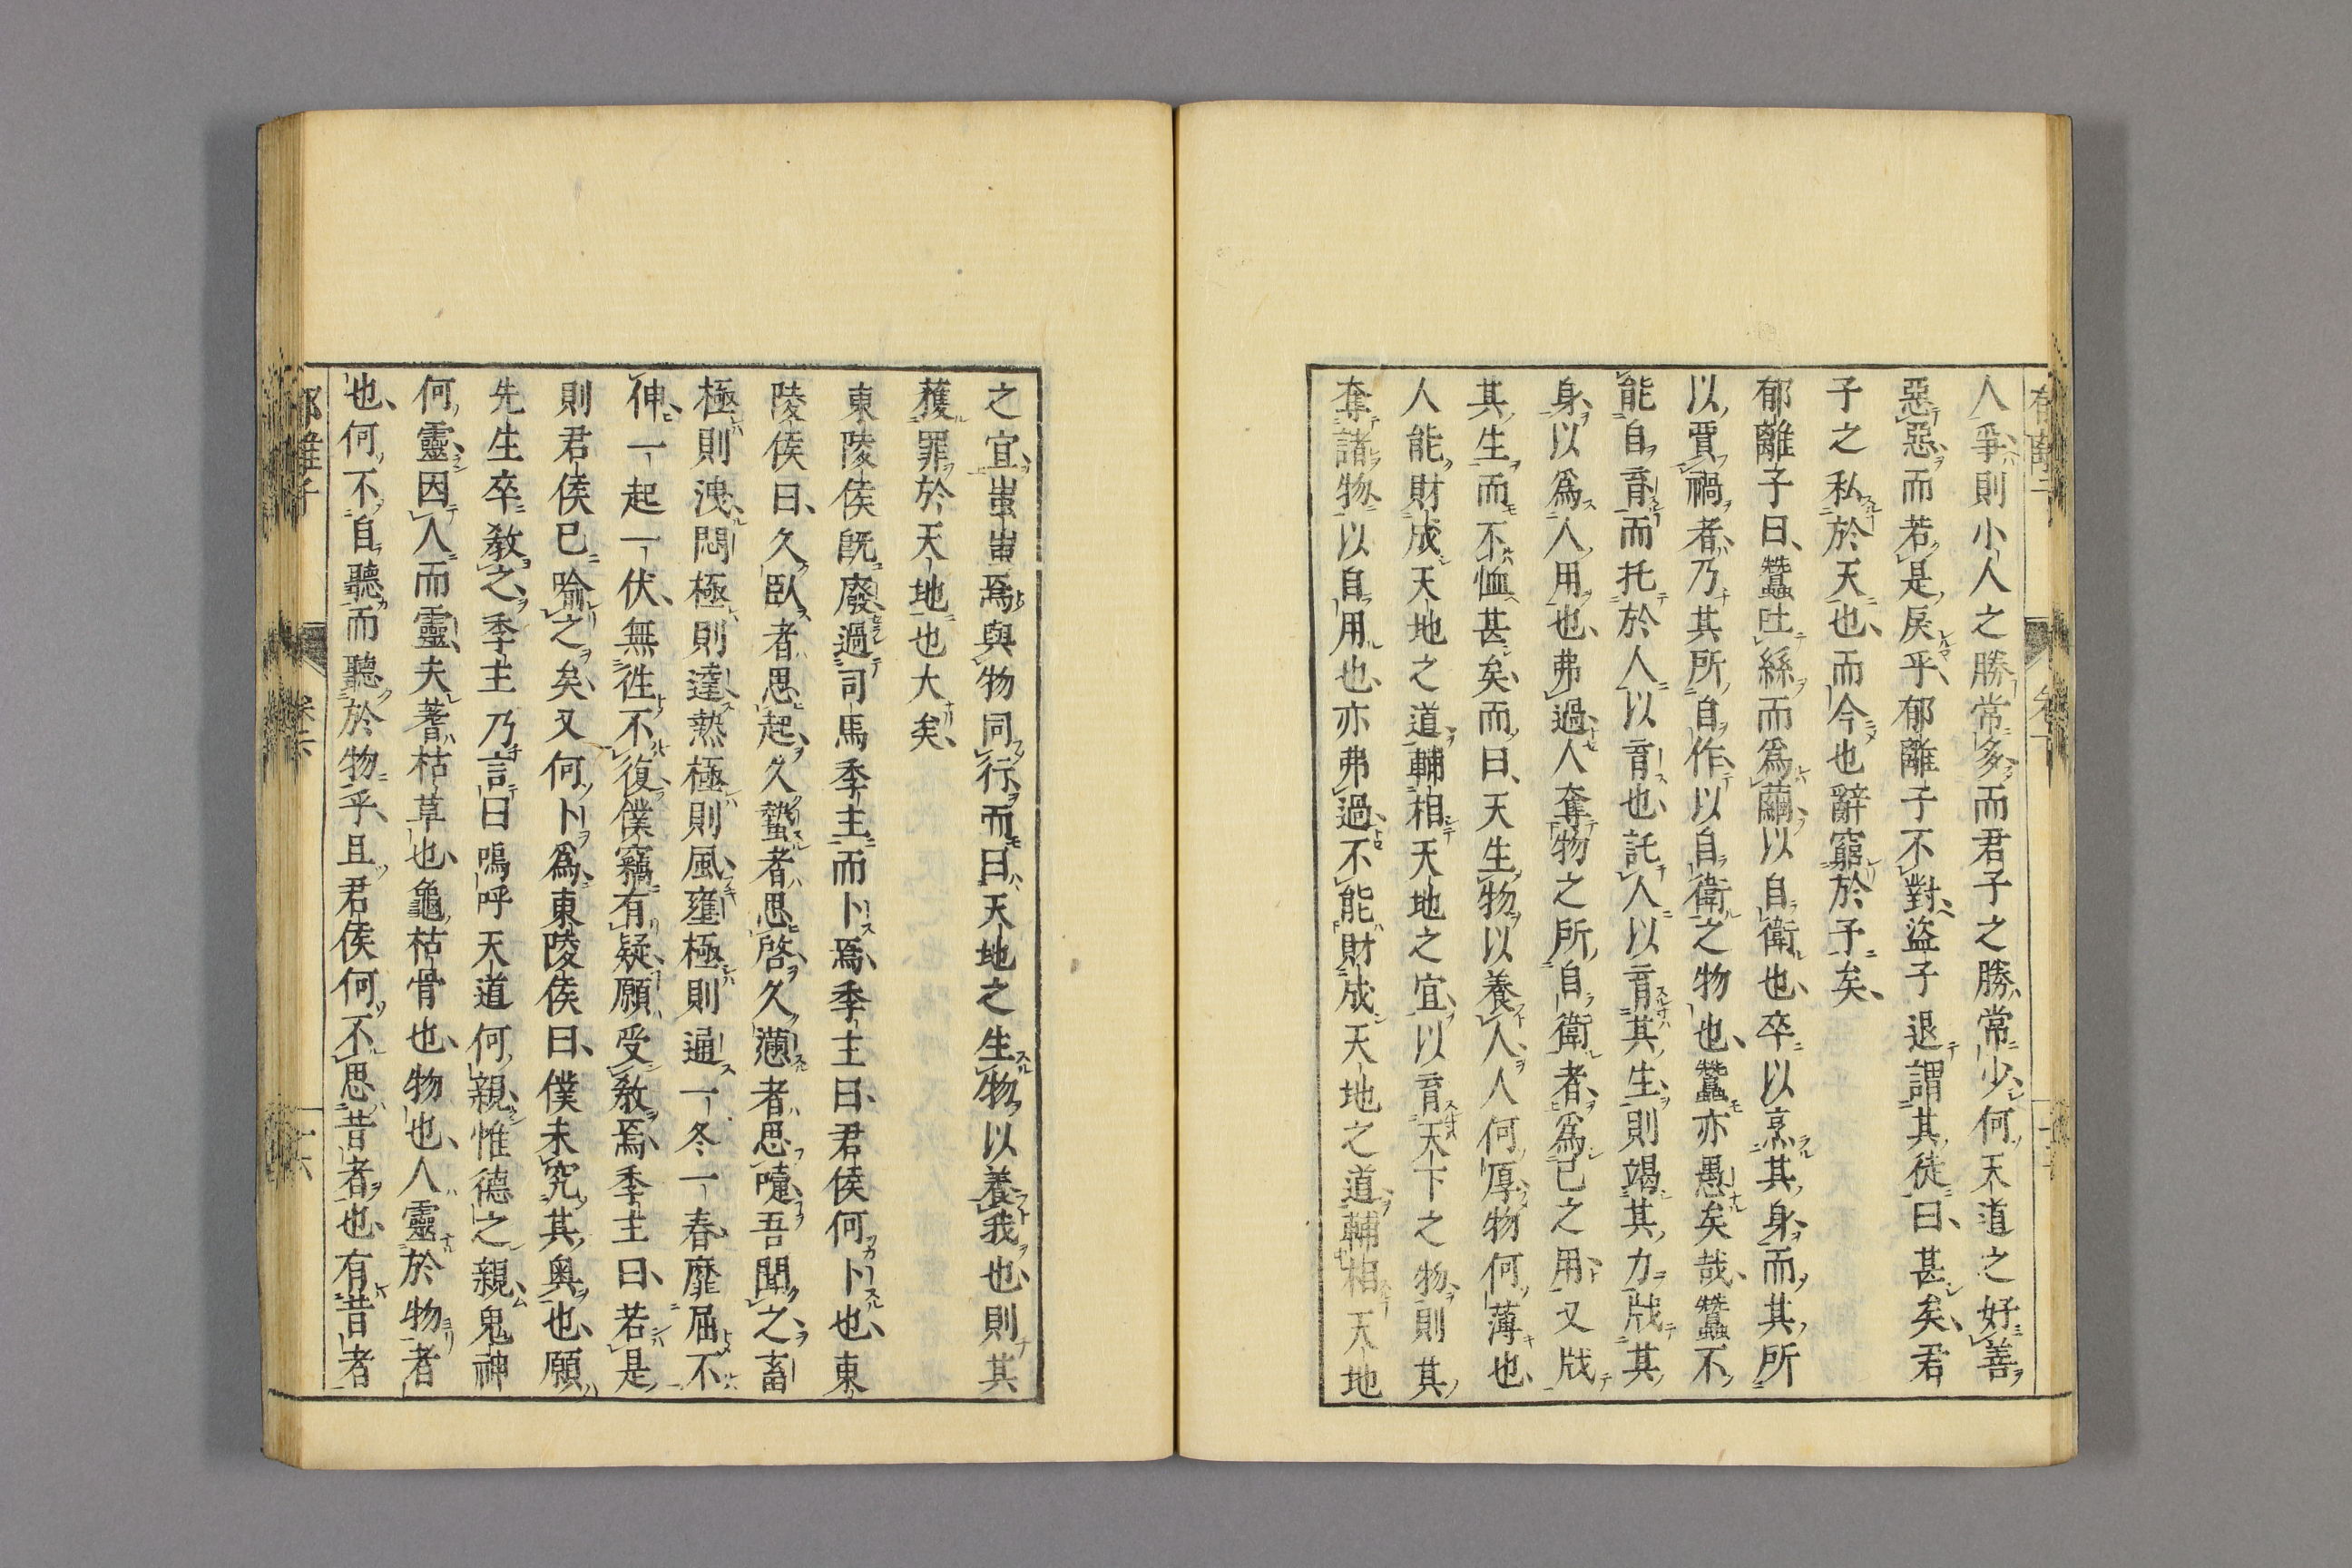 人爭則小人之勝常多而君子之勝常少何天道之好善
惡惡而若是戾乎郁離子不對盜子退謂其徒曰甚矣君
子之私於天也而今也辭窮於予矣
郁離子曰蠶吐絲而爲繭以自衛也卒以烹其身而其所
以賈禍者乃其所自作以自衛之物也蠶亦愚矣哉蠶不
能自育而托於人以育也託人以育其生則竭其力戕其
身以爲人用也弗過人奪物之所自衛者爲已之用又戕
其生而不恤甚矣而曰天生物以養人人何厚物何薄也
人能財成天地之道輔相天地之宜以育天下之物則其
奪諸物以自用也亦弗過不能財成天地之道輔相天地
之宜蚩蚩焉與物同行而曰天地之生物以養我也則其
獲罪於天地也大矣
東陵侯既廢過司馬季主而卜焉季主曰君侯何卜也東
陵侯曰久臥者思起久蟄者思啓久懣者思嚔吾聞之畜
極則洩悶極則達熱極則風壅極則通一冬一春靡屈不
伸一起一伏無徃不復僕竊有疑願受教焉季主曰若是
則君侯已喻之矣又何卜爲東陵侯曰僕未究其奥也願
先生卒教之季主乃言曰嗚呼天道何親惟德之親鬼神
何靈因人而靈夫蓍枯草也龜枯骨也物也人靈於物者
也何不自聽而聽於物乎且君侯何不思昔者也有昔者
郁離子